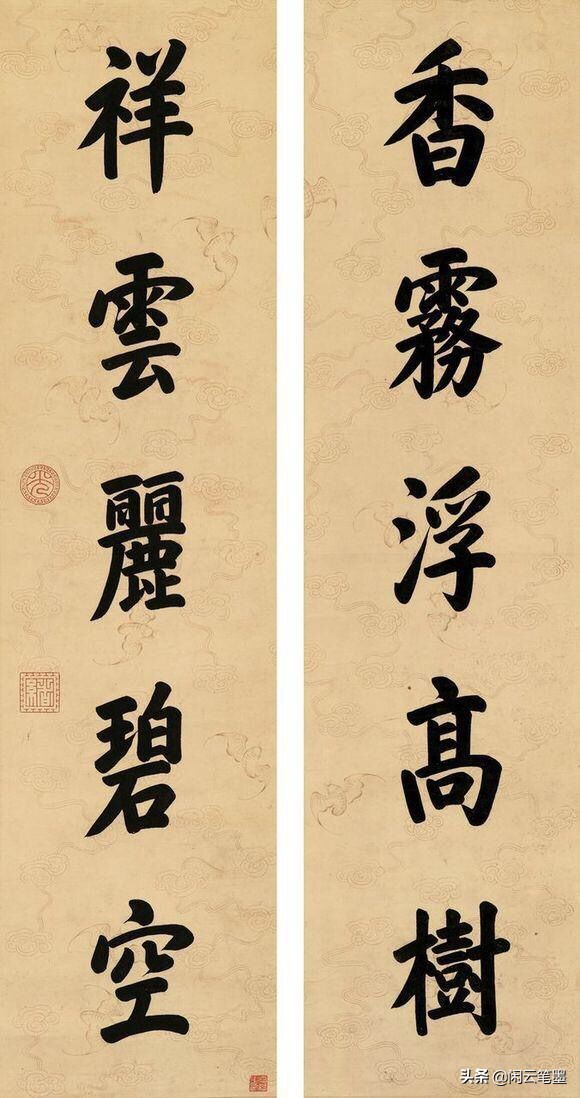 香霧浮高樹
祥雲麗碧空
头条 @闲云笔墨